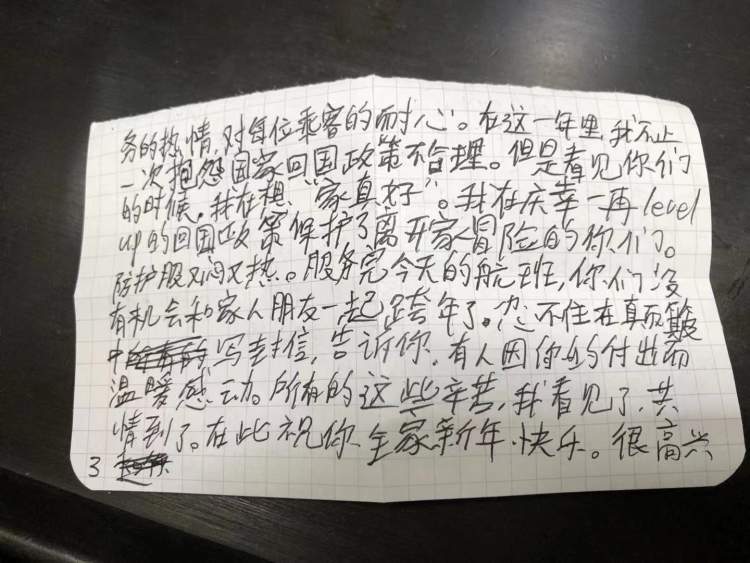 务的热情,对每位乘客的耐心。在这一年里,我不止
一次抱怨国家回国政策不合理。但是看见你们
的时候,我在想,“家真好”。我在庆幸一再level
up的回国政策保护了离开家冒险的你们。
防护服又闷又热。服务完今天的航班,你们没
有机会和家人朋友一起跨年了。忍不住在
中 写封信,告诉你,有人因你的付出而
温暖感动。所有的这些辛苦,我看见了,共
情到了。在此祝你全家新年快乐。很高兴
3